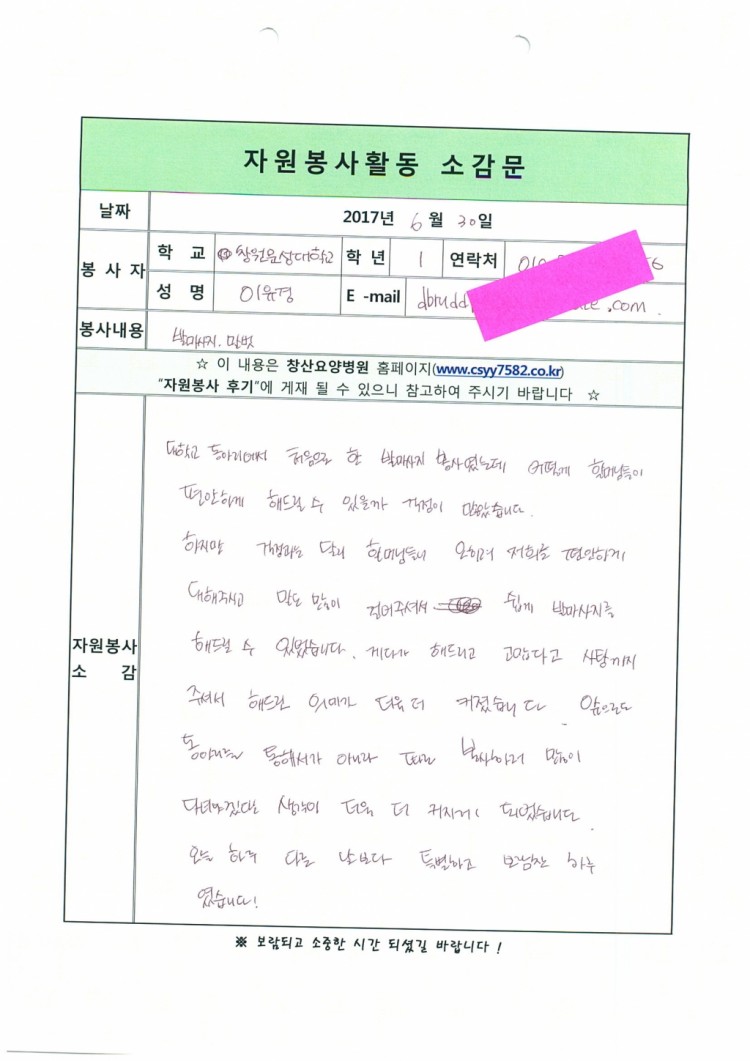 자원봉사활동 소감문
날짜 2017년 6월 30일
봉사자 학 교 창원문성대학교 학년 1 연락처 010 56
성 명 이유경 E-mail dbrudd .com
봉사내용 발마사지. 말벗
☆ 이 내용은 창산요양병원 홈페이지(www.csyy7582.co.kr)
"자원봉사 후기"에 게재 될 수 있으니 참고하여 주시기 바랍니다 ☆
자원봉사
소 감
대학교 동아리에서 처음으로 한 발마사지 봉사였는데 어떻게 할머님들이
편안하게 해드릴 수 있을까 걱정이 많았습니다.
하지만 걱정과는 달리 할머님들이 오히려 저희를 편안하게
대해주시고 말도 많이 걸어주셔서 쉽게 발마사지를
해드릴 수 있었습니다. 게다가 해드리고 고맙다고 사탕까지
주셔서 해드린 의미가 더욱 더 커졌습니다. 앞으로도
동아리를 통해서가 아니라 따로 봉사하러 많이
다녀야겠다는 생각이 더욱 더 커지게 되었습니다.
오늘 하루 다른 날보다 특별하고 보람찬 하루
였습니다!
※ 보람되고 소중한 시간 되셨길 바랍니다 !